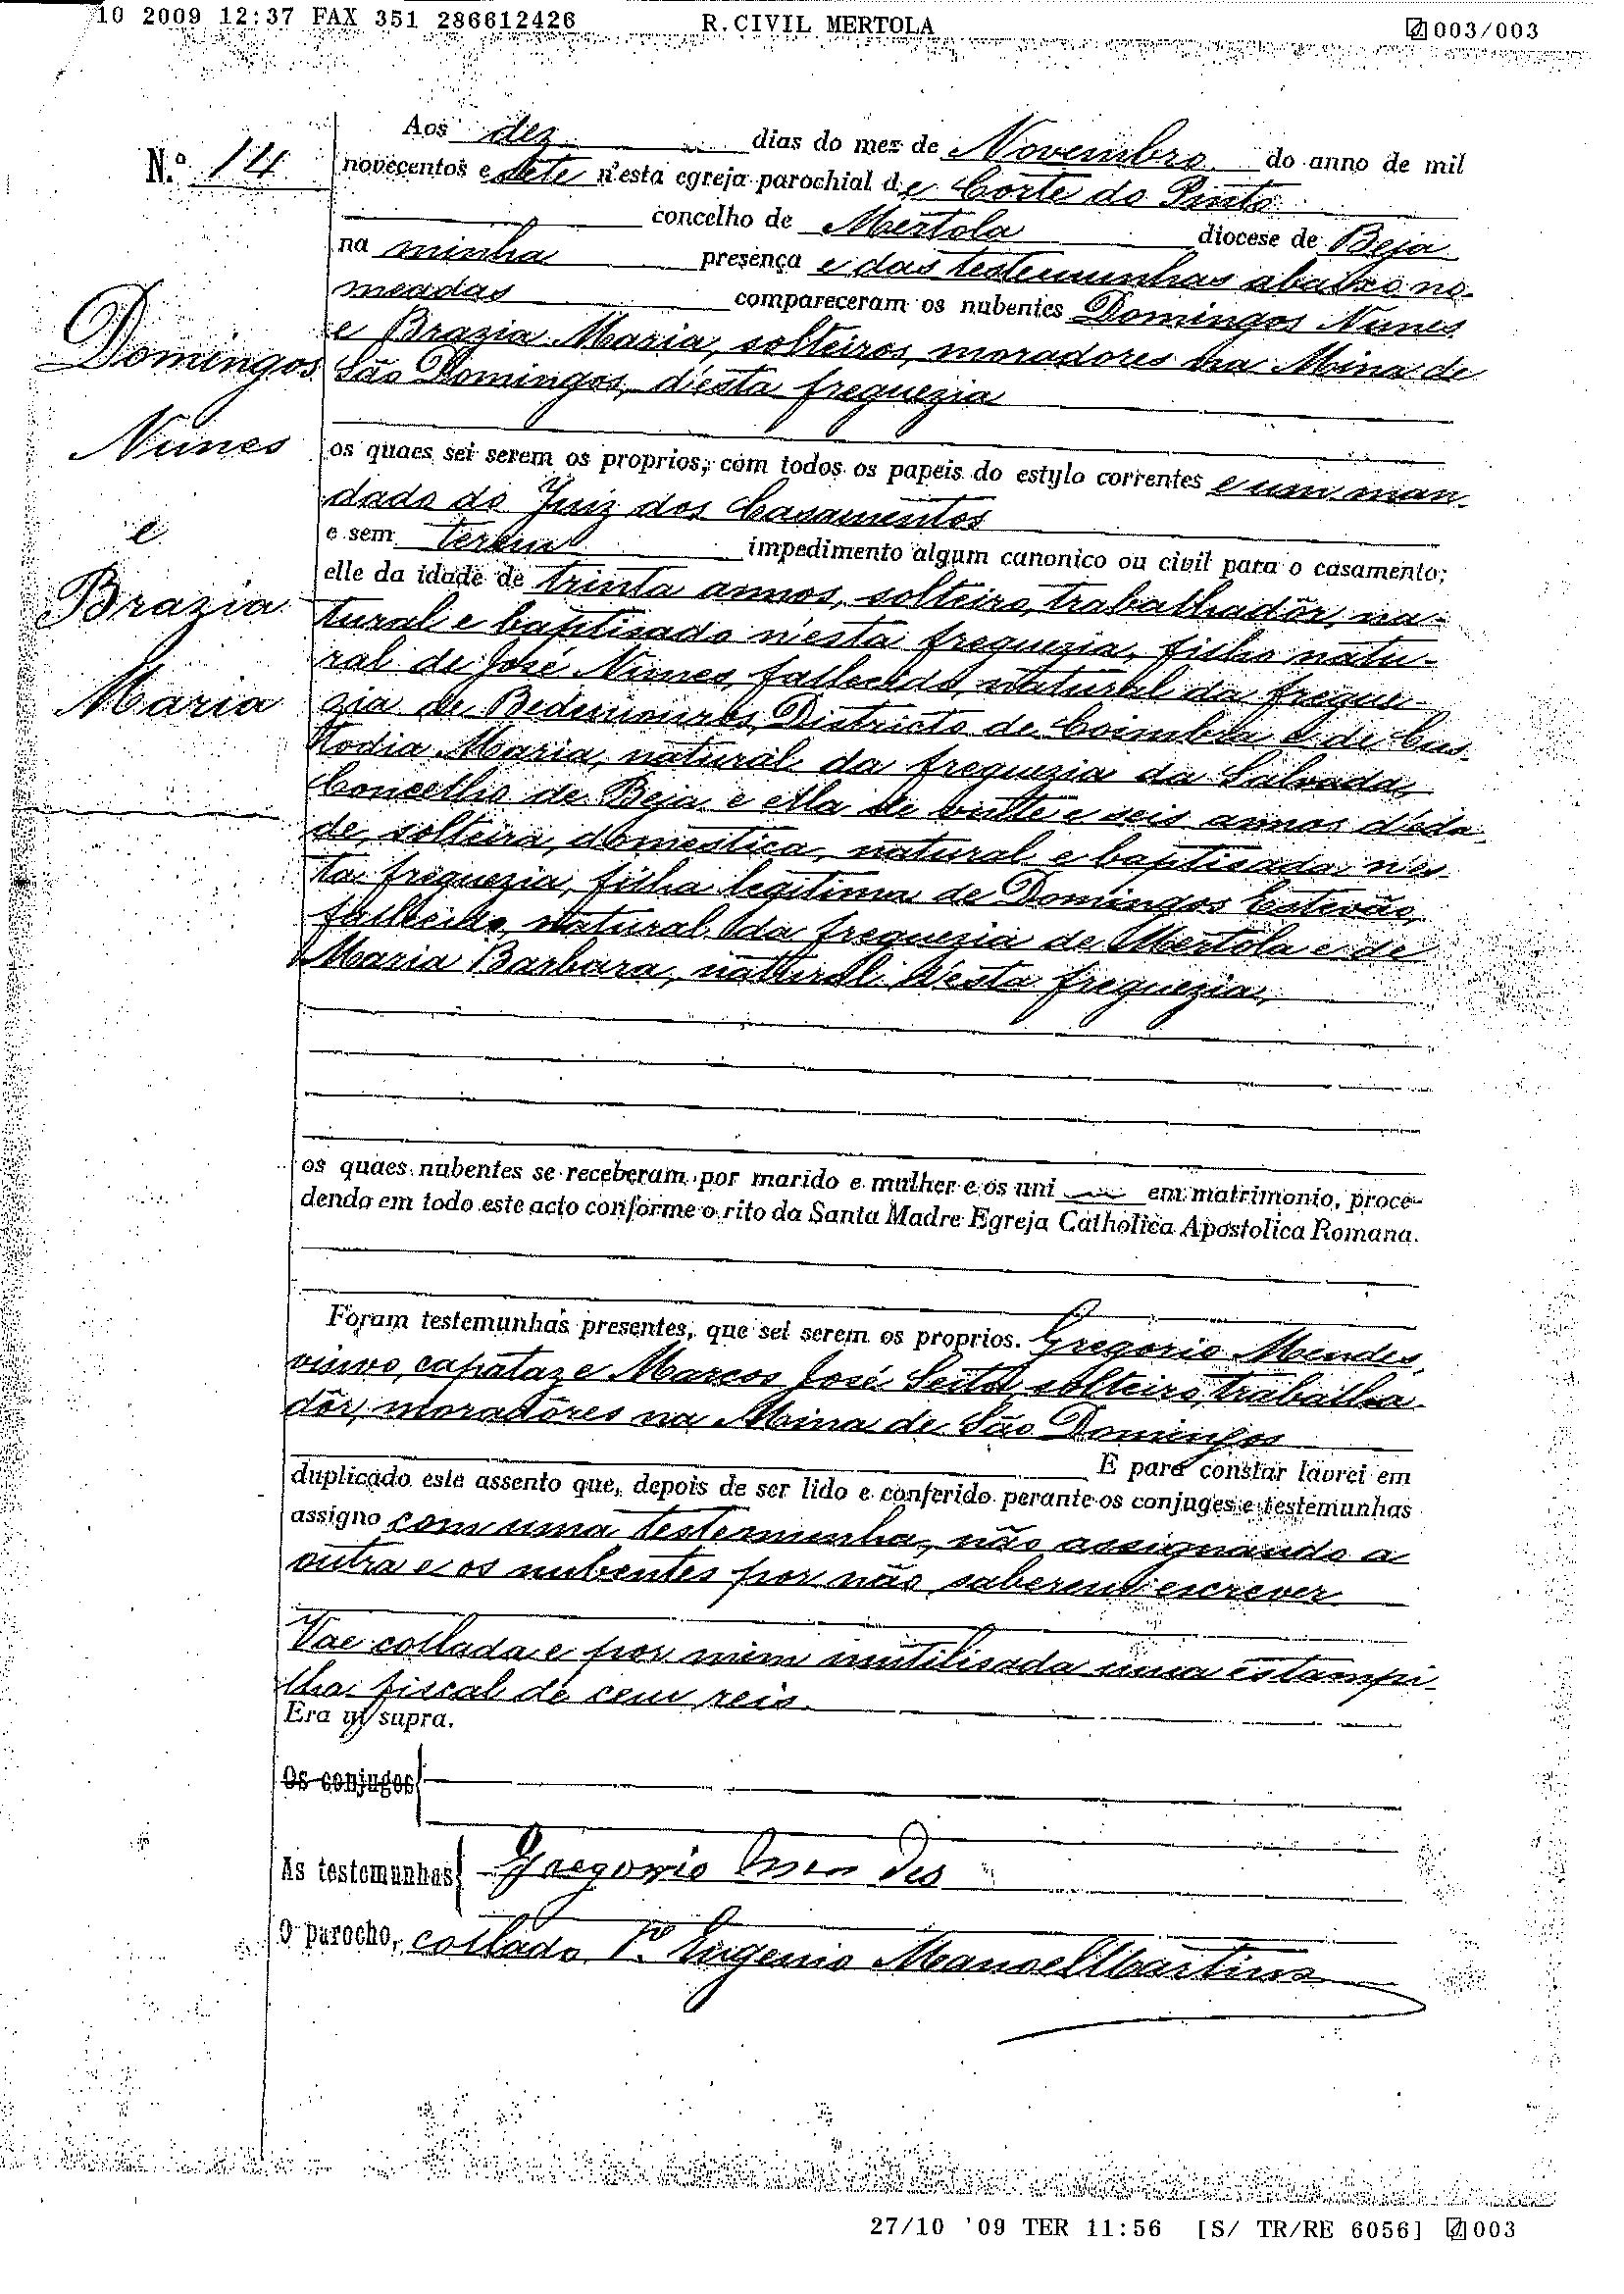 10 2009 12:37 FAX 351 286612426 R.CIVIL MERTOLA 003/003
N.º 14
Domingos
Nunes
e
Brazia
Maria
Aos dez dias do mez de Novembro do anno de mil
novecentos e sete n'esta egreja parochial de Corte do Pinto
concelho de Mertola diocese de Beja
na minha presença e das testemunhas abaixo no-
meadas compareceram os nubentes Domingos Nunes
e Brazia Maria, solteiros, moradores na Mina de
São Domingos, d'esta freguezia
os quaes sei serem os proprios, com todos os papeis do estylo correntes e um man-
dado do Juiz dos Casamentos
e sem terem impedimento algum canonico ou civil para o casamento;
elle da idade de trinta annos, solteiro, trabalhadôr, na-
tural e baptisado n'esta freguezia, filho natu-
ral de José Nunes, fallecido, natural da fregue-
zia de Districto de Coimbra e de Cus-
todia Maria, natural da freguezia da Salvada,
Concelho de Beja e ella de vinte e seis annos d'eda-
de, solteira, domestica, natural e baptisada n'es-
ta freguezia, filha legitima de Domingos Estevão,
fallecido, natural da freguezia de Mertola e de
Maria Barbara, natural d'esta freguezia,
os quaes nubentes se receberam por marido e mulher e os uni em matrimonio, proce-
dendo em todo este acto conforme o rito da Santa Madre Egreja Catholica Apostolica Romana.
Foram testemunhas presentes, que sei serem os proprios. Gregorio Mendes,
viuvo, capataz e Marcos José solteiro, trabalha-
dôr, moradôres na Mina de São Domingos
E para constar lavrei em
duplicado este assento que, depois de ser lido e conferido perante os conjuges e testemunhas
assigno com uma testemunha, não assignando a
outra e os nubentes por não saberem escrever.
Vae collada e por mim inutilisada uma estampi-
lha fiscal de cem reis.
Era ut supra.
Os conjuges
As testemunhas Gregorio Mendes
O parocho, collado P.e Eugenio Manoel Martins
27/10 '09 TER 11:56 [S/ TR/RE 6056] 003